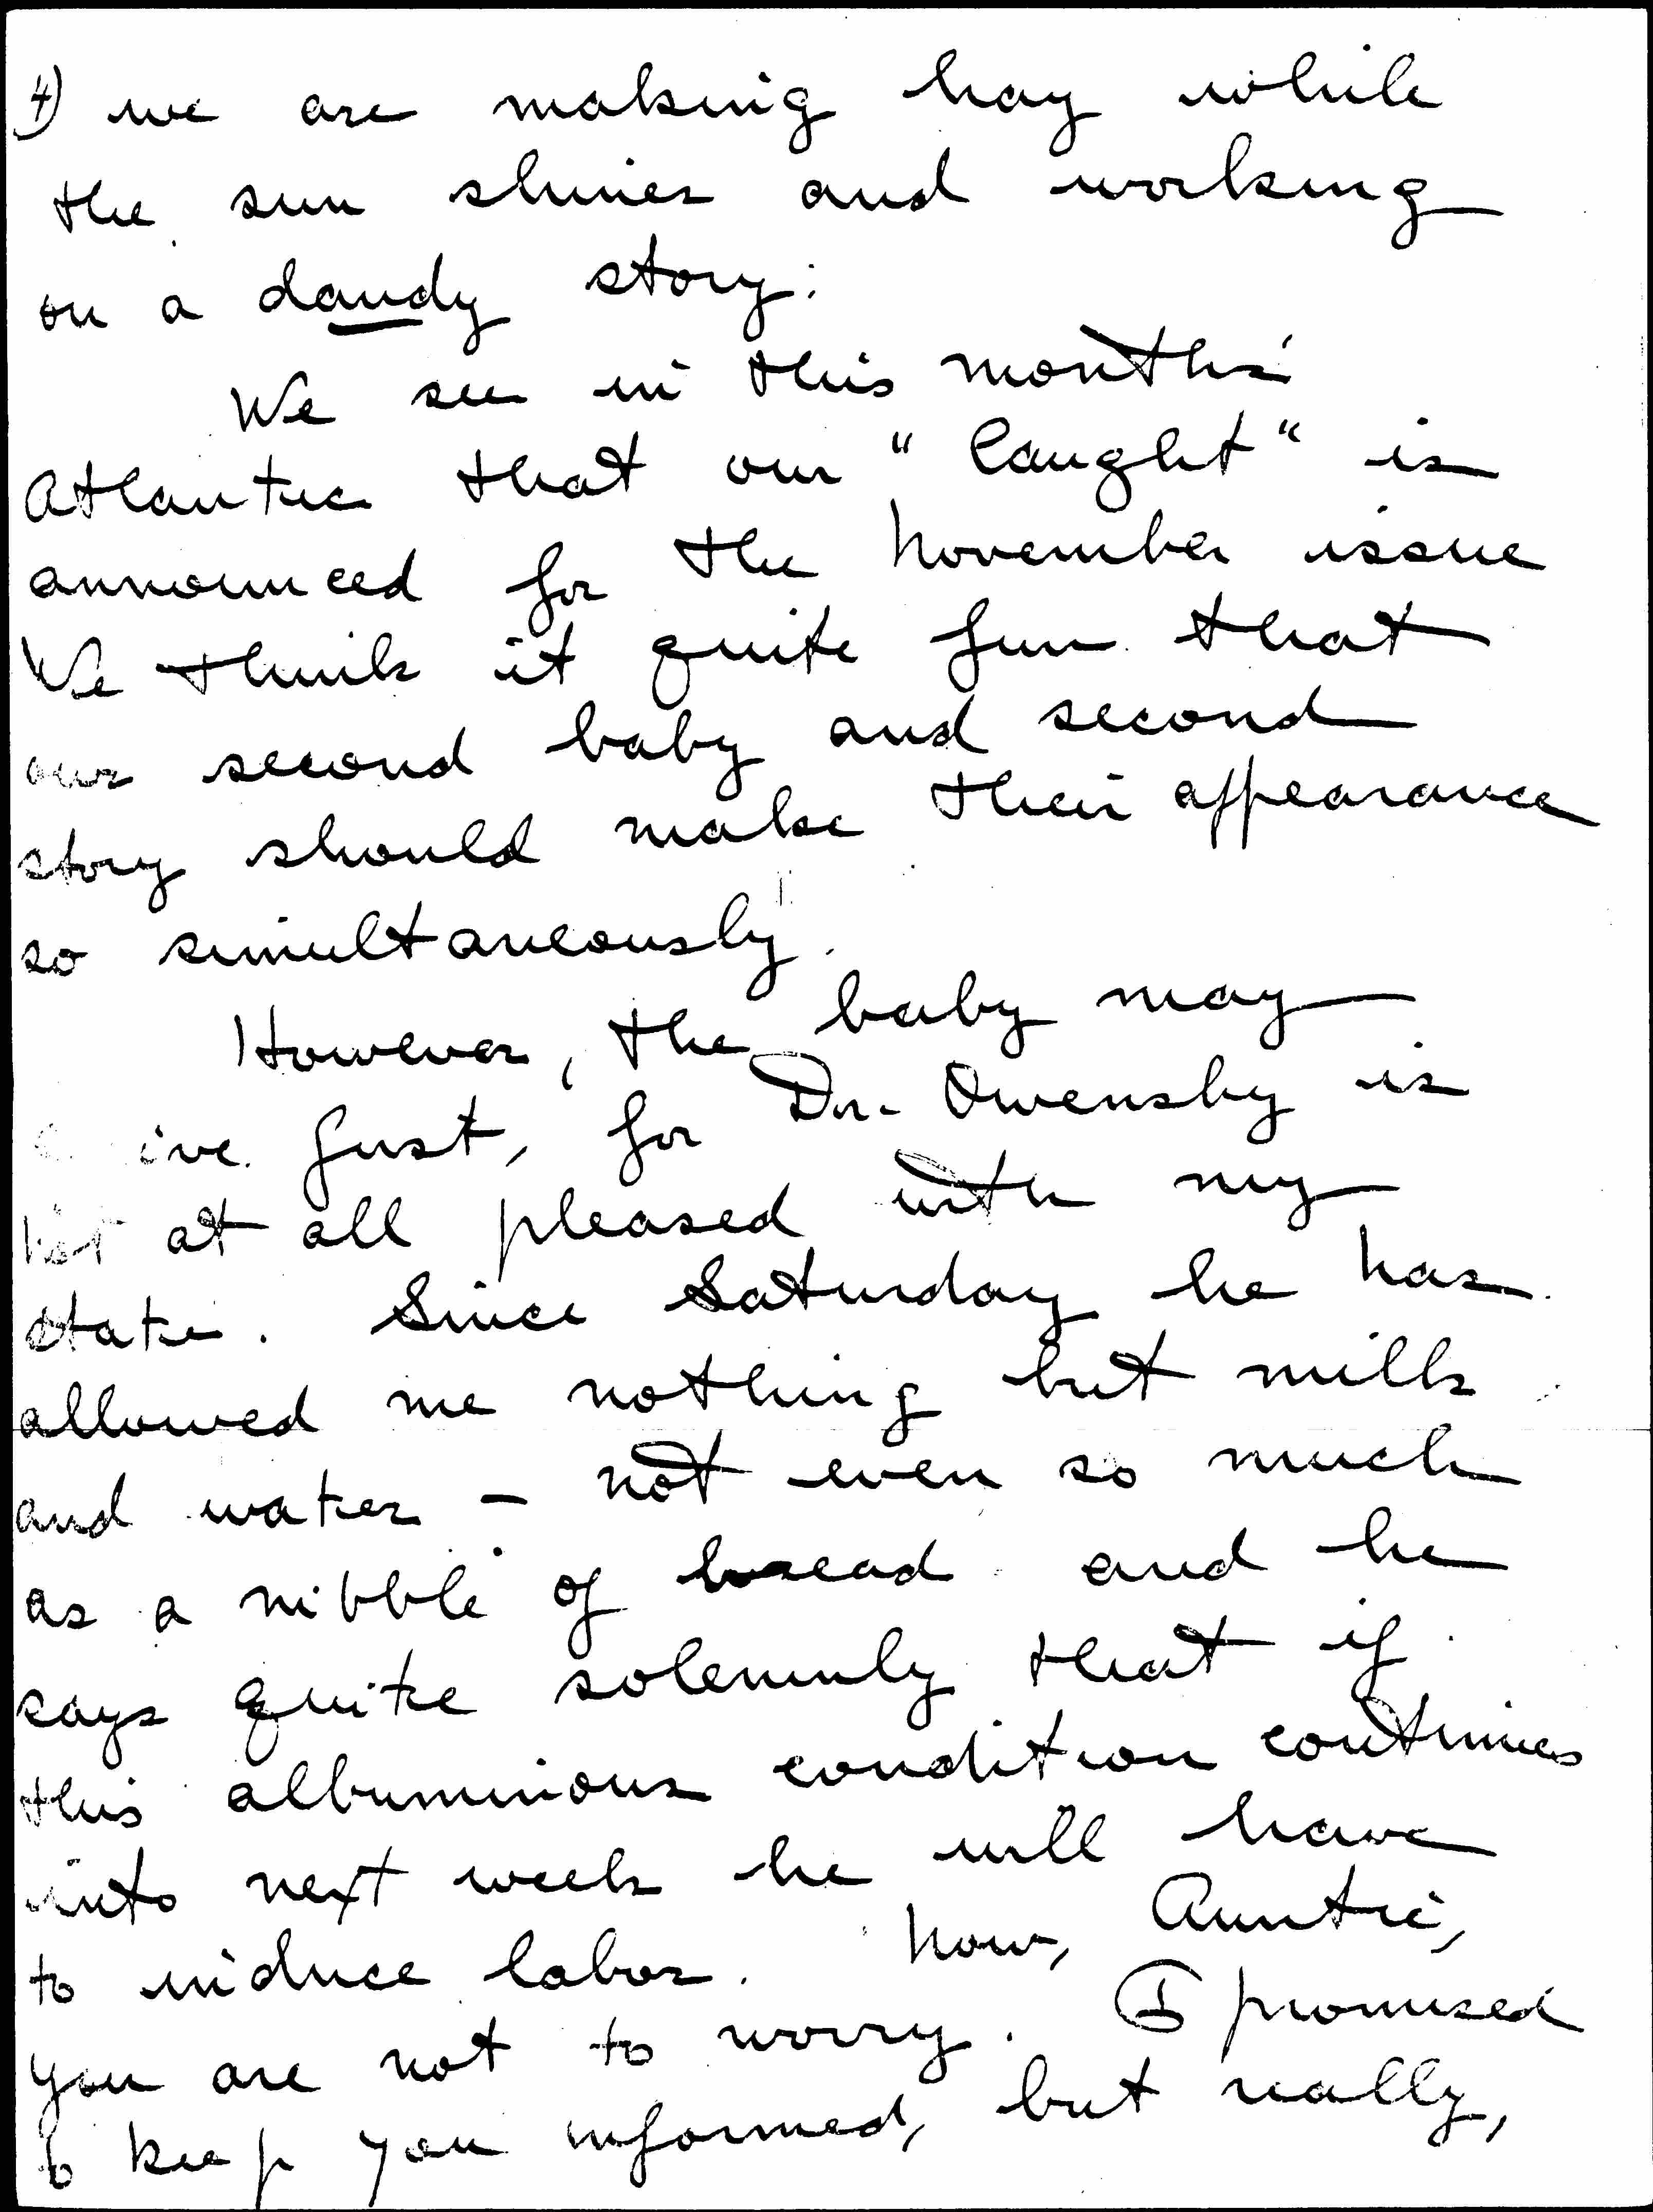 4) we are making hay while
the sun shines and working
on a dandy story.
We see in this months'
Atlantic that our "Caught" is
announced for the November issue
We think it quite fun that
our second baby and second
story should make their appearance
so simultaneously.
However, the baby may
ive first, for Dr. Owensby is
not at all pleased with my
state. Since Saturday he has
allowed me nothing but milk
and water - not even so much
as a nibble of bread and he
says quite solemnly that if
this albuminous condition continues
into next week he will have
to induce labor. Now, Auntie,
you are not to worry. I promised
to keep you informed, but really,